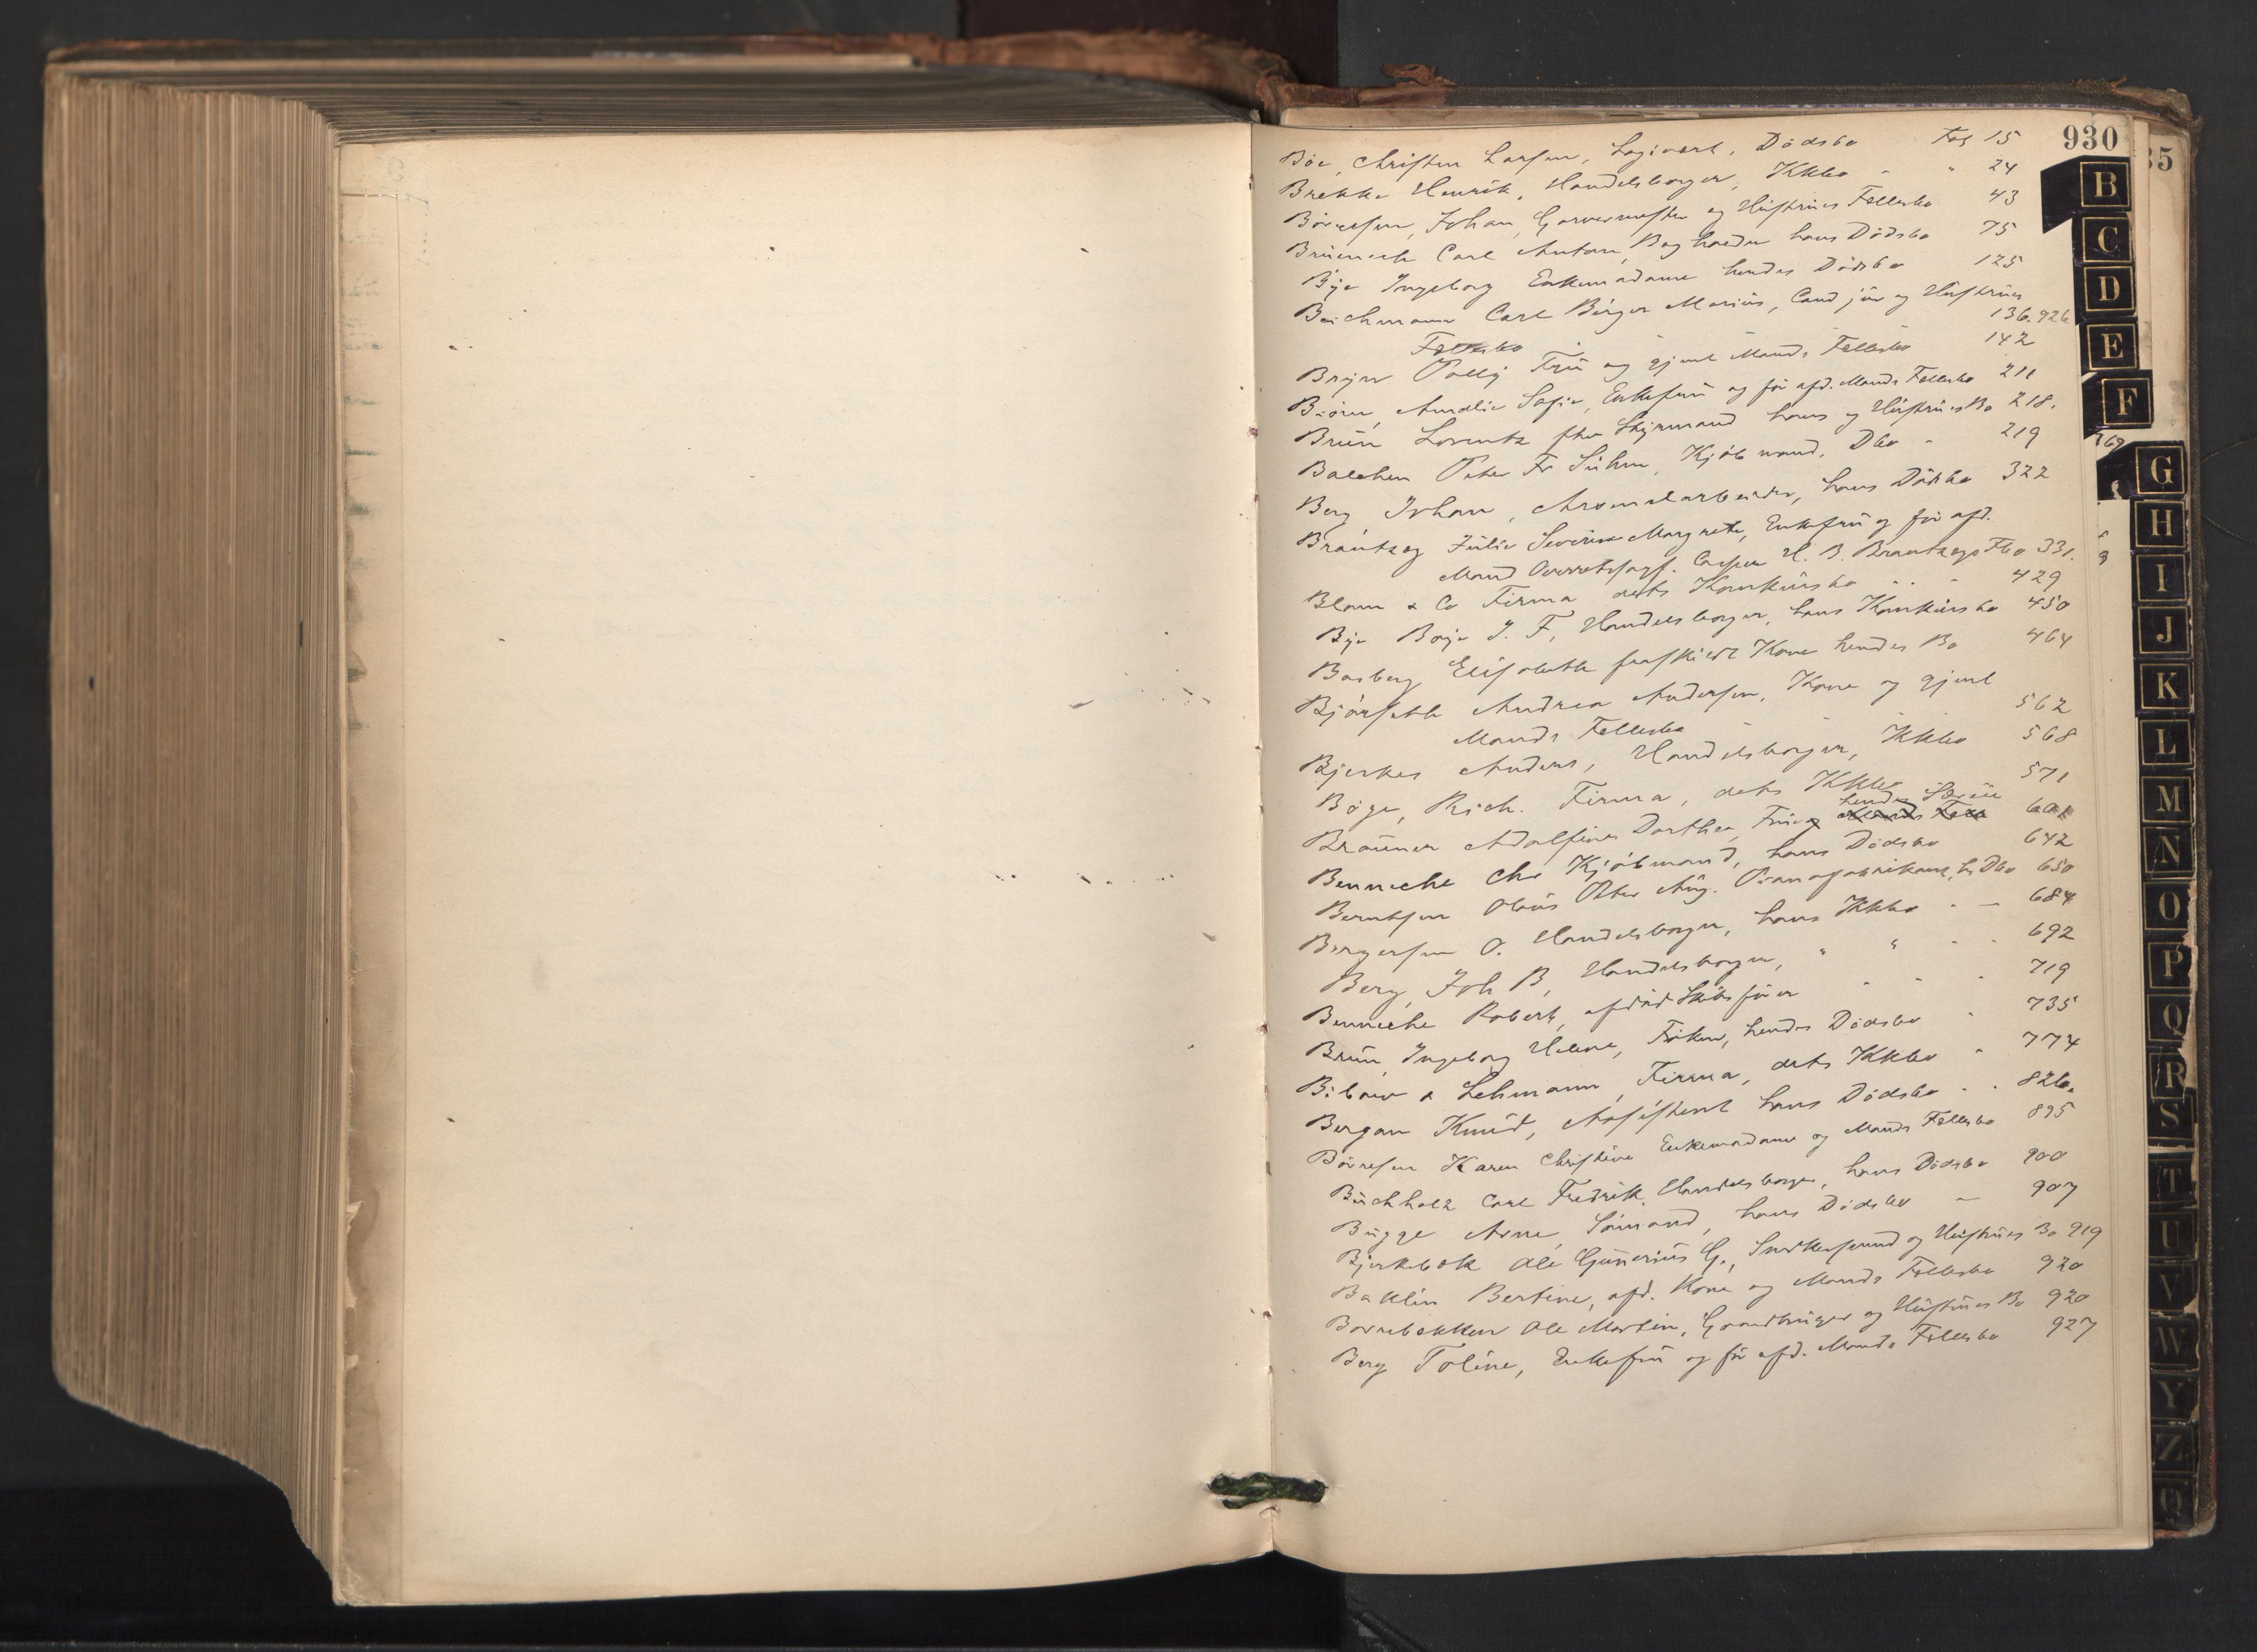 930
35
Böe, Christen Larsen, Logivært, Dödsbo Fol 15
Brekke Henrik, Handelsborger, Kkbo " 24
Börresen, Johan, Garvermester og Hustrues Fællesbo 43
Brünnich Carl Anton, Bogholder hans Dödsbo 75
Bye Ingeborg Enkemadame hendes Dödsbo 125
Beichmann Carl Birger Marius, Cand jur og Hustrues
Fællesbo 136. 926
Bryn Polly Frue og gjenl Mands Fællesbo 142
Biörn, Amalie Sofie, Enkefru og för afd. Mands Fællesbo 211
Brun Lorentz fhv Styrmand hans og Hustrues Bo 218.
Balchen Peter Fr Suhm, Kjöbmand, Dbo - 219
Berg Johan, Arsenalarbeider, hans Dödsbo 322
Brantzeg Julie Severine Margrete, Enkefru og för afd.
Mand Overretssagf. Casper H. B. Brantzegs Fbo 331.
Blom & Co Firma dets Konkursbo - - - 429
Bye Borje J. F, Handelsborger, hans Konkursbo 450
Bosberg Elisabeth fraskildt Kone hendes Bo 464
Björseth Andrea Andersen, Kone og gjenl
Mands Fællesbo 562
Bjerkes Anders, Handelsborger, Kkbo 568
Böge, Rich. Firma, dets Kkbo 571
hendes Særeie
Brauner Adolfine Dorthea, Frue og Mands Febo 601
Bennecke Chr Kjöbmand, hans Dödsbo 642
Berntsen Olaus Peter Aug. Pianofabrikant, h. Dbo 650
Bergersen O. Handelsborger, hans Kkbo - — 684
Berg, Joh B, Handelsborger, " " - - 692
Bennecke Robert, afdöd Skibsförer - - - 719
Brun, Ingeborg Helene, Fröken, hendes Dödsbo - 735
Bibow & Lehmann, Firma, dets Kkbo - 774
Bergan Knud, Assistent hans Dödsbo - - 826.
Börresen Karen Christine Enkemadame og Mands Fællesbo 895
Buchholz Carl Fredrik, Handelsborger, hans Dödsbo 900
Bugge Arne, Sömand, hans Dödsbo — 907
Bjerkebæk Ole Gunerius G., Snedkersvend og Hustrues Bo 919
Baklin Bertine, afd. Kone og Mands Fællesbo 920
Borrebækken Ole Martin, Gaardbruger og Hustrues Bo 920
Berg Toline, Enkefru og för afd. Mands Fællesbo 927
B
C
D
E
F
G
H
I
J
K
L
M
N
O
P
Q
R
S
T
U
V
W
Y
Z
Ø